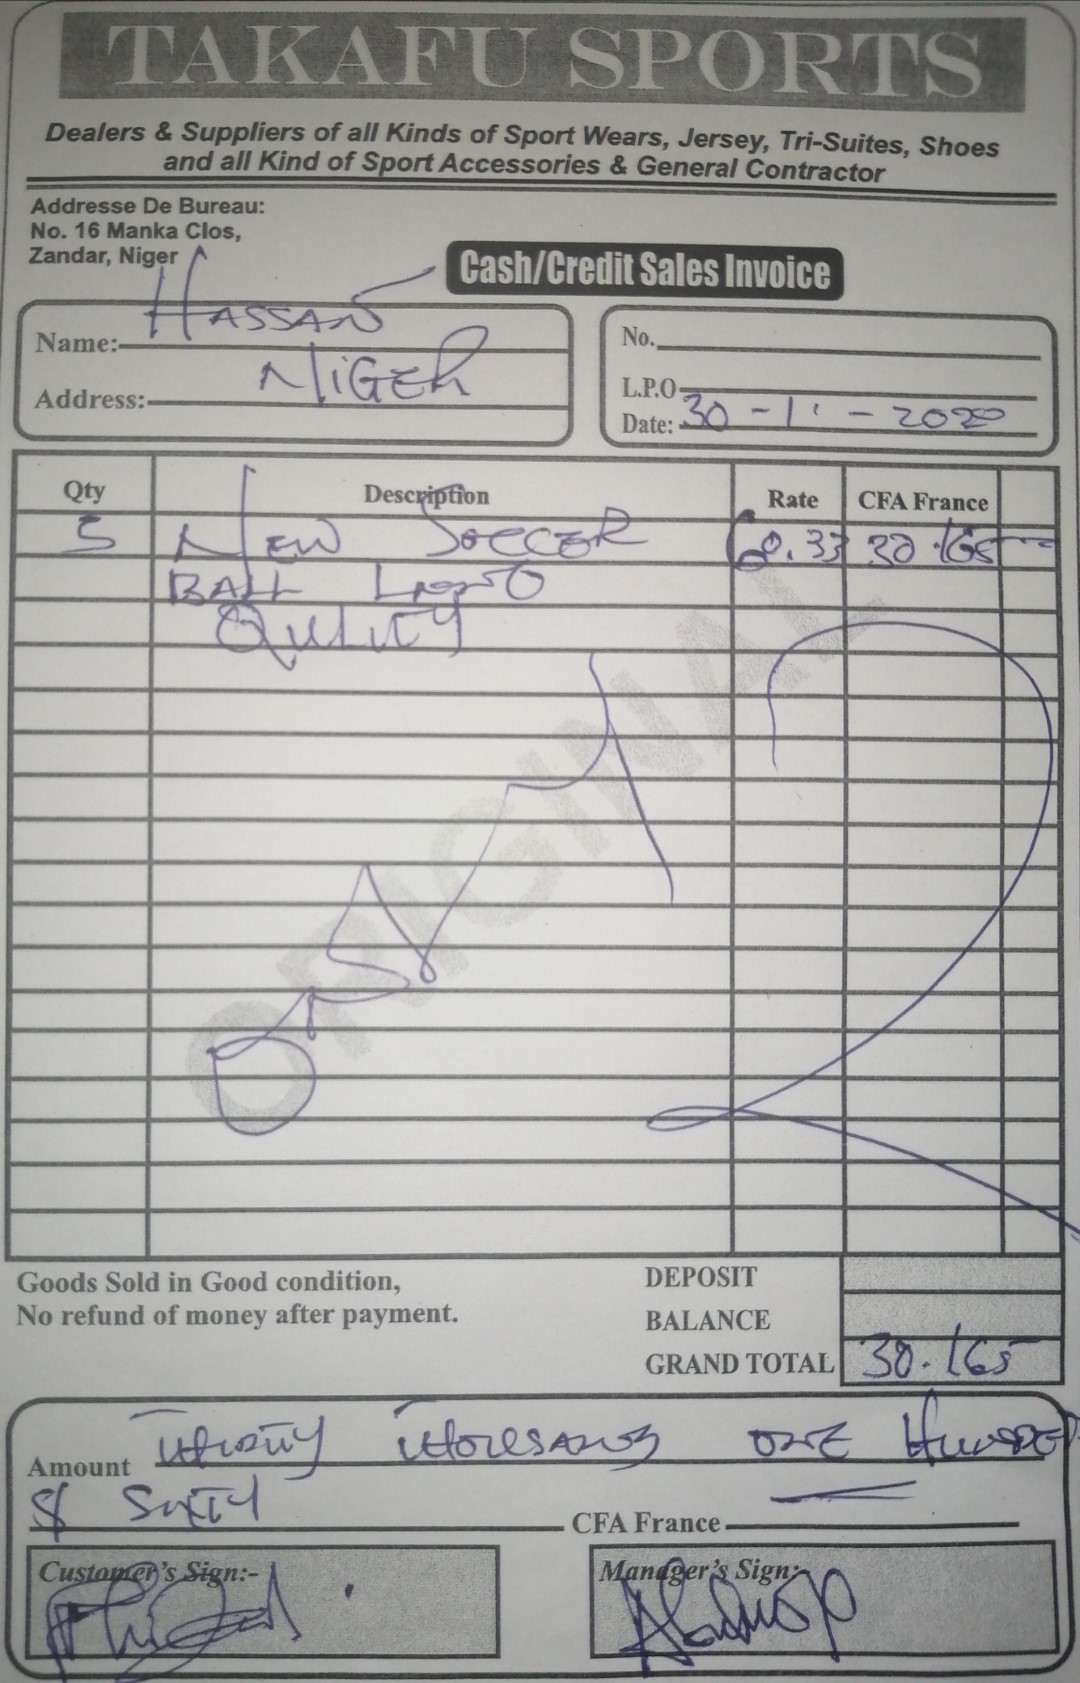 TAKAFU SPORTS
Dealers & Suppliers of all Kinds of Sport Wears, Jersey, Tri-Suites, Shoes
and all Kind of Sport Accessories & General Contractor
Addresse De Bureau:
No. 16 Manka Clos,
Zandar, Niger
Cash/Credit Sales Invoice
Name: HASSAN
Address: NIGER
No.
L.P.O
Date: 30 - 11 - 2020
Qty Description Rate CFA France
5 NEW SOCCER 60.33 30.165
BALL
QULITY
ORIGINAL
Goods Sold in Good condition,
No refund of money after payment.
DEPOSIT
BALANCE
GRAND TOTAL 30.165
Amount THIRTY THOUSAND ONE HUNDRED
& SIXTY CFA France
Customer's Sign:-
Manager's Sign:-